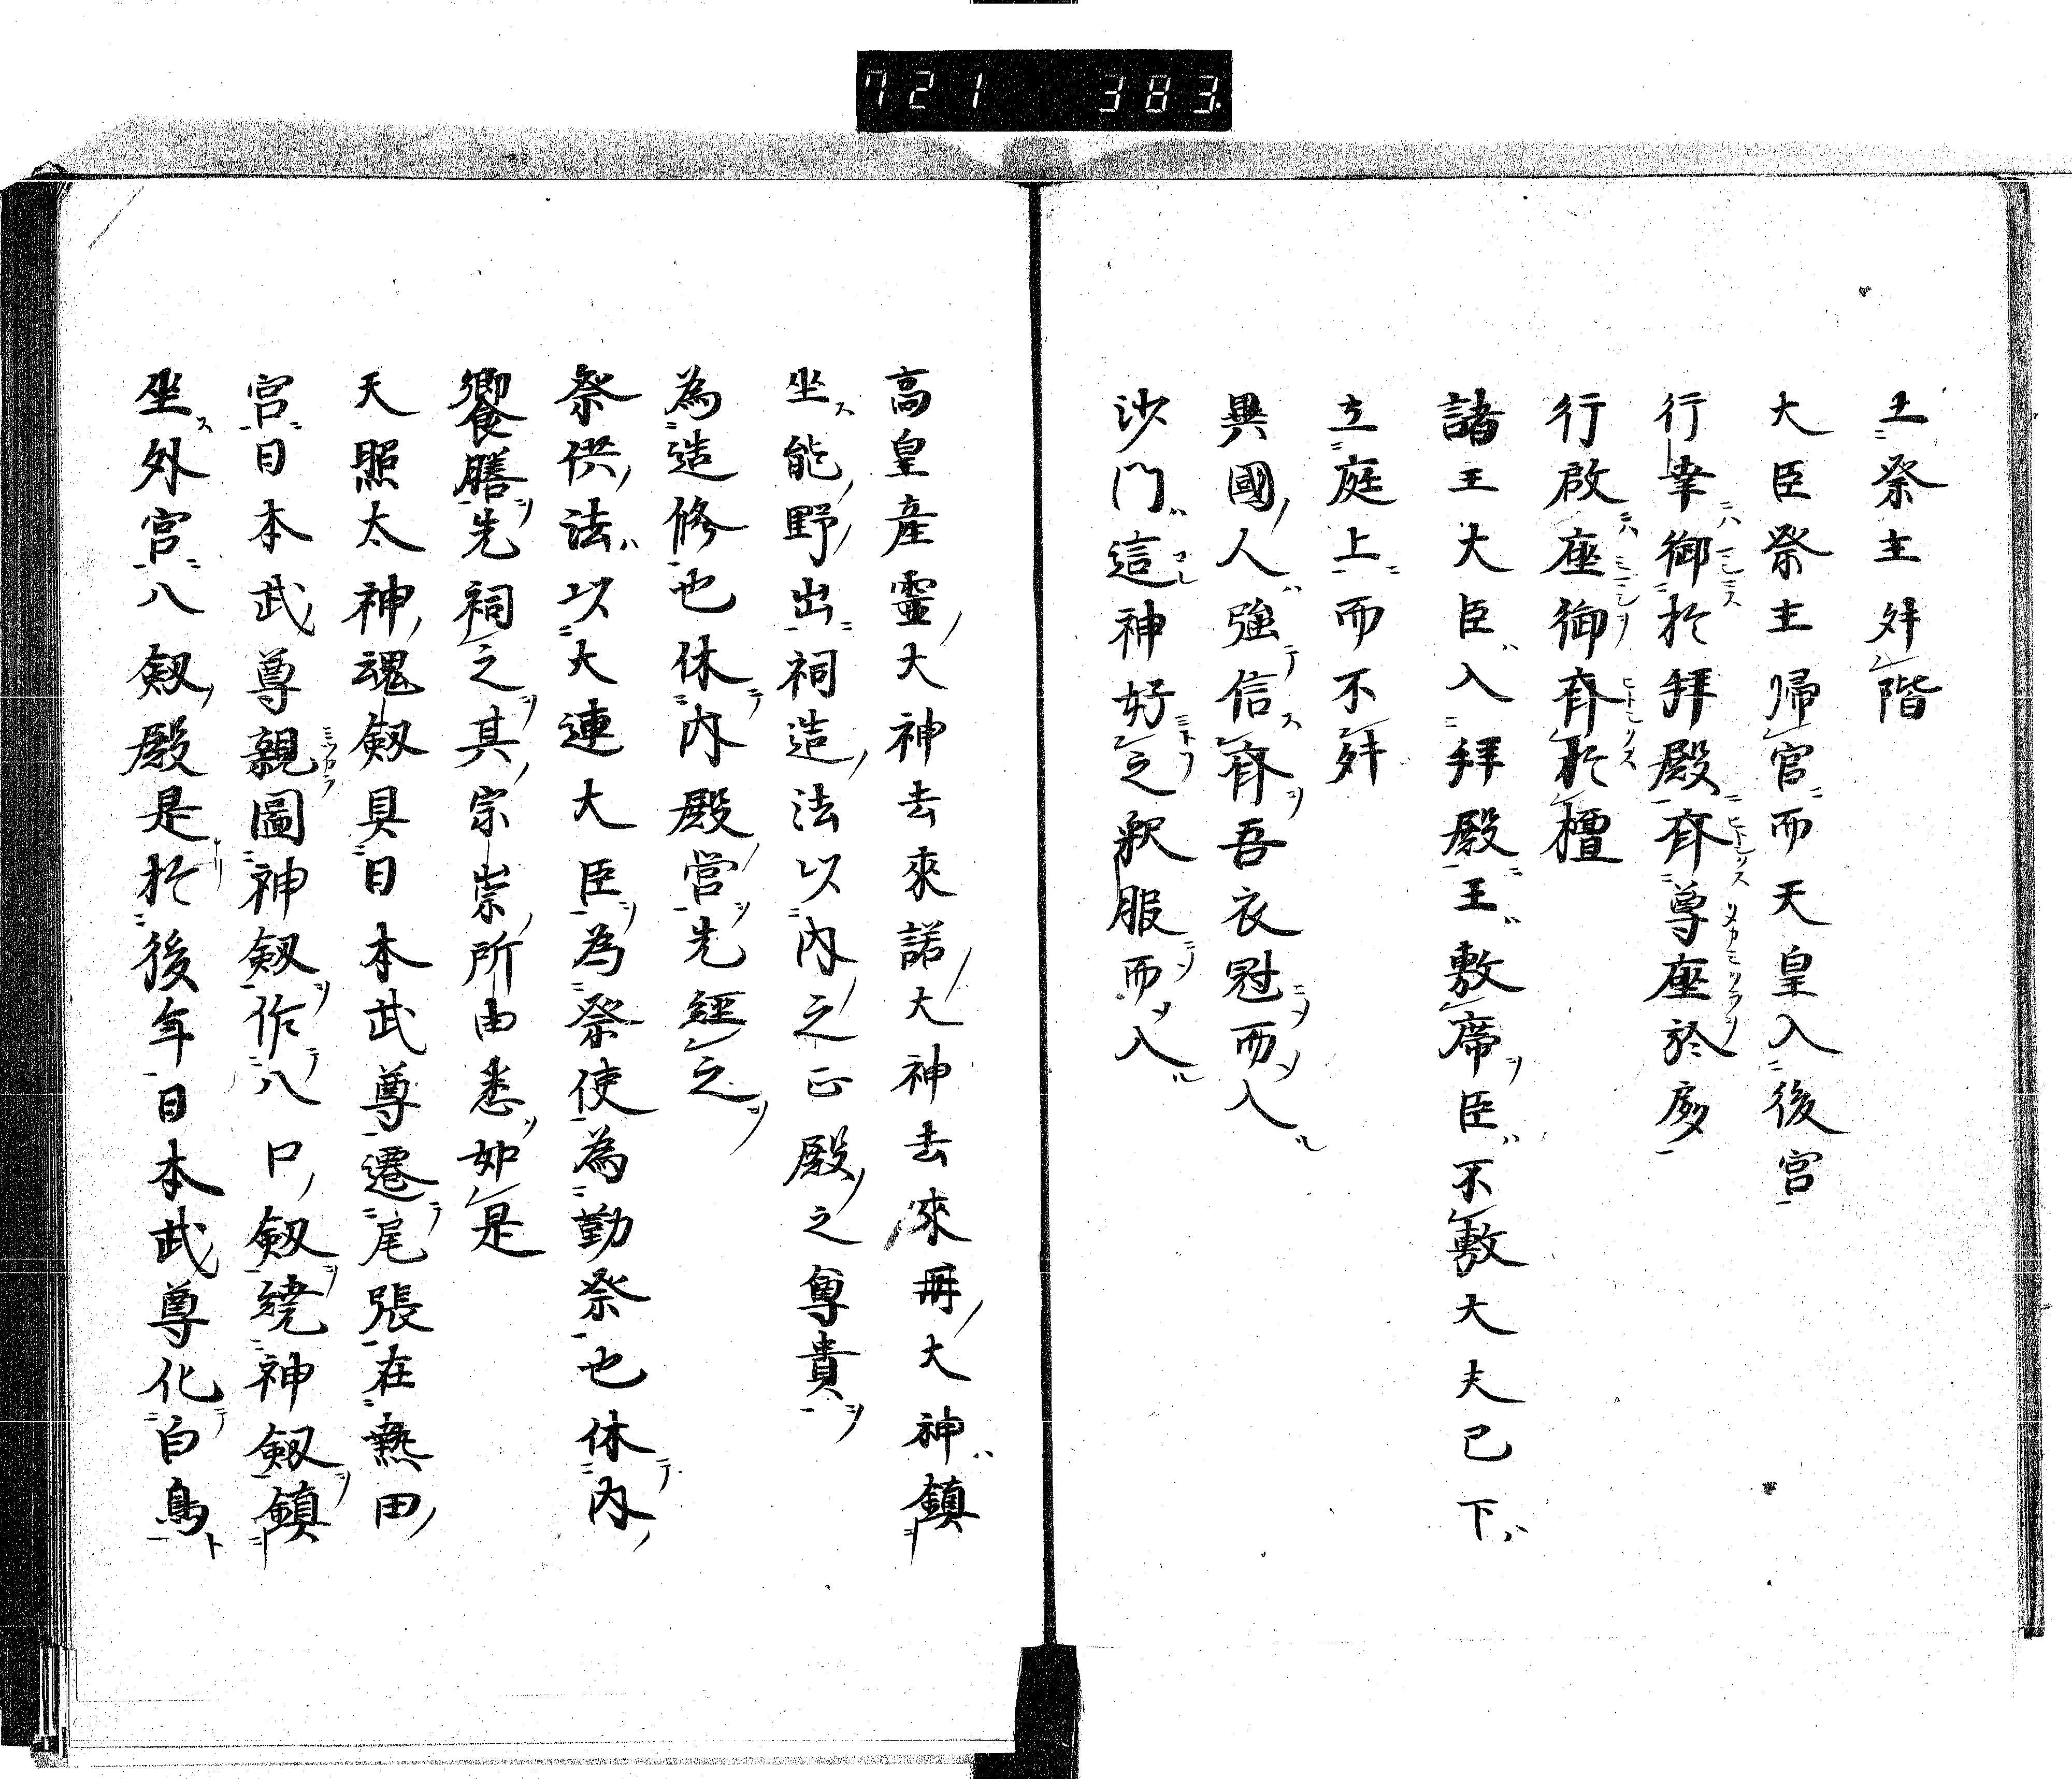 721 383
土祭主舛階
大臣祭主帰官而天皇入後宮
行幸御於拜殿齊尊座於處
行啟座御齊於檀
諸王大臣入拜殿王敷席臣不敷大夫已下
立庭上而不舛
異國人強信齊吾衣冠而入
沙門這神好之釈服而入
高皇産靈大神去來諾大神去來冊大神鎮
坐能野出祠造法以内之正殿之尊貴
為造修也休内殿営先經之
祭供法以大連大臣為祭使為勤祭也休内
饗膳先祠之其宗崇所由悉如是
天照太神魂劔具日本武尊遷尾張在熱田
宮日本武尊親圖神劔作八口劔繞神劔鎮
坐外宮八劔殿是於後年日本武尊化白鳥